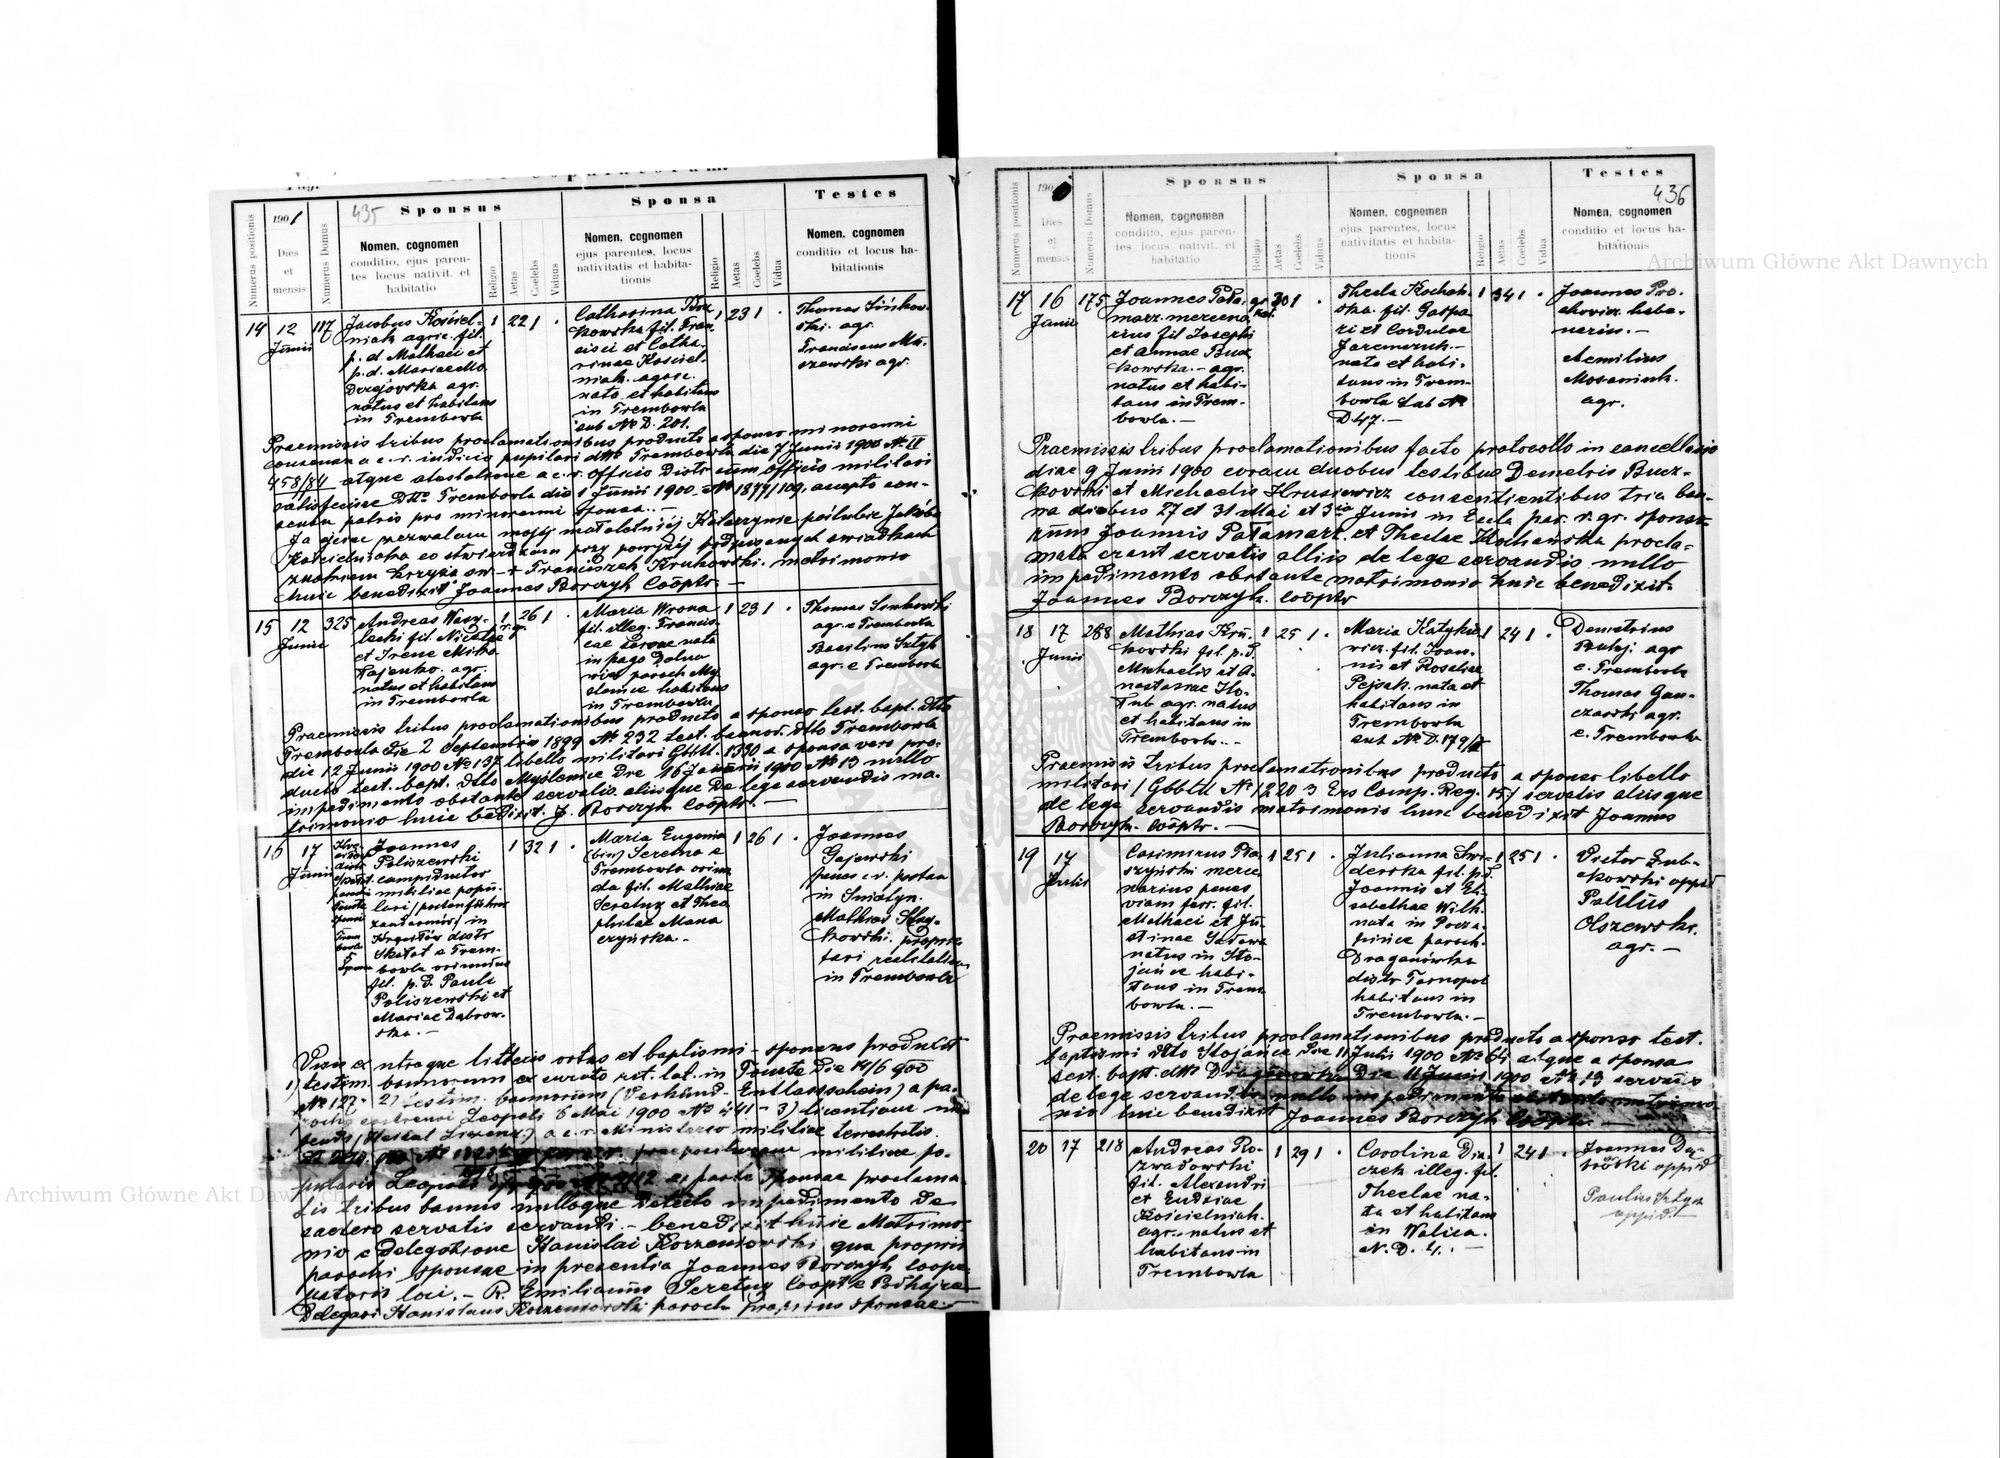 Liber Copulatorum.
Pag.
435
1901
Numerus positionis
Dies et mensis
Numerus Domus
Sponsus
Sponsa
Testes
Nomen, cognomen
conditio, ejus paren-
tes locus nativit. et
habitatio
Religio
Aetas
Coelebs
Viduus
Nomen, cognomen
ejus parentes, locus
nativitatis et habita-
tionis
Religio
Aetas
Coelebs
Vidua
Nomen, cognomen
conditio et locus ha-
bitationis
14
12
Junii
187
Jacobus Kościel-
niak agric. fil.
p. d. Mathaei et
p. d. Mariae Mo
Drzejovska agr.
natus et habitans
in Trembowla
1 22 1
Catharina Kru
kowska fil. Fran
cisci et Catha-
rinae Kościel
niak. agric.
nata et habitans
in Trembowla
sub No D. 201.
1 23 1
Thomas Sinkow
ski. agr.
Franciscus Mu-
szewski agr.
Praemissis tribus proclamationibus producto a sponso minorenni
consensu a c. r. iudicio pupilari dtto Trembowla die 7 Junii 1900 No IV
458/84 atque atestatione a c. r. officio Distr cum officio militari
satisfecisse Dtto. Trembowla die 1 Junii 1900. No 18771/109, accepto con-
sensu patris pro minorenni sponsa. -
Ja ojciec zezwalam mojej małoletniej Katarzynie poślubić Jakóba
Kościelniaka co stwierdzam przy powyżej podpisanych świadkach
znakiem krzyża św. + Franciszek Krukowski. matrimonio
huic benedixit Joannes Borczyk Coöptr. —
15
12
Junii
325
Andreas Wasy-
lecki fil. Nicolai
et Irene Mikо
łajenko. agr.
natus et habitans
in Trembowla
1 26 1
Maria Wrona
fil. illeg. Francis
cae Wrona nata
in pago Dolna
wieś paroch My
slenice habitans
in Trembowla
1 23 1
Thomas Sinkowski
agr. e Trembowla
Basilius Sztyk
agr. e Trembowla
Praemissis tribus proclamationibus producto a sponso test. bapt. dtto
Trembowla Die 2 Septembris 1899 No 232 test. bannor. dtto Trembowla
die 12 Junii 1900 No 137 libello militari Gbttl. 1350 a sponsa vero pro-
ducto test. bapt. Dtto Myślenice Die 16 Januarii 1900 No 13 nullo
impedimento obstante servatis aliisque De lege servandis ma-
trimonio huic bedixit. J. Borczyk. Coöptr. —
16
17
Junii
Joannes
Paliszewski
campiductor
militiae popu-
lari/postenführer
żandarmer/ in
Krzywe distr
Skałat e Trem-
bowla oriundus
fil. p. d. Pauli
Paliszewski et
Mariae Dąbrow-
ska. -
1 32 1
Maria Eugenia
(bin) Seretna e
Trembowla oriun
da fil. Mathiae
Seretny et Theo
philae Mana
czyńska. -
1 26 1
Joannes
Gajewski
penes c. r. postam
in Śniatyn.
Mathias Słu-
kowski. proprie
tari realitatis
in Trembowla
Visis ex utroque litteris ortus et baptismi - sponsus produxit
1) testim. bannorum ex curato rit. lat. in Touste Die 14/6 900
No 127. 2) testim. bannorum (Verkünd- Entlassschein) a pa-
rocho castrensi Leopoli 6 Mai 1900 No 441 - 3) licentiam nu
bendi (Heirat Lizenz.) a c. r. Ministerio militiae terrestris.
praepositurae militiae po-
pularis Leopoli No 2112 ex parte Sponsae proclama-
tis tribus bannis nulloque Detecto impedimento De
caetero servatis servandi. - benedixit huic Matrimo
nio e Delegatione Stanislai Korzeniowski qua proprii
parochi sponsae in presentia Joannes Borczyk Coope-
ratoris loci. - R. Emilianus Seretny Cooptr e Podhajce
Delegavi Stanislaus Korzeniowski paroch proprius sponsae. —
436
1900
Numerus positionis
Dies et mensis
Numerus Domus
Sponsus
Sponsa
Testes
Nomen, cognomen
conditio, ejus paren-
tes locus nativit. et
habitatio
Religio
Aetas
Coelebs
Viduus
Nomen, cognomen
ejus parentes, locus
nativitatis et habita-
tionis
Religio
Aetas
Coelebs
Vidua
Nomen, cognomen
conditio et locus ha-
bitationis
17
16
Junii
175
Joannes Pała-
marz. mercena
rius fil Josephi
et Annae Bucz
kowska. - agr.
natus et habi-
tans in Trem-
bowla. -
gr. kat.
30 1
Thecla Kochań-
ska. fil. Gaspa
ri et Cordulae
Jaremczuk. -
nata et habi-
tans in Trem-
bowla sub No
D 47. -
1 34 1
Joannes Pro-
chowicz. habe-
narius. -
Aemilius
Mosaniuk.
agr.
Praemissis tribus proclamationibus facto protocollo in cancellario
diae 9 Junii 1900 coram duobus testibus Demetris Bucz-
kowski et Michaelis Hrusiewicz consentientibus tria ban-
na diebus 27 et 31 Mai et 3io Junii in Eccla par. r. gr. sponso
rum Joannis Pałamarz et Theclae Kochańska procla-
mata erant servatis alliis de lege servandis nullo
impedimento obstante matrimonio huic benedixit.
Joannes Borczyk. Coöptr
18
17
Junii
288
Mathias Kru-
kowski fil. p. d.
Michaelis et A-
nastasiae Ho-
łub agr. natus
et habitans in
Trembowla. -
1 25 1
Maria Katykie
wicz. fil. Joan-
nis et Rosaliae
Pejsak. nata et
habitans in
Trembowla
sub No D. 179/II
1 24 1
Demetrius
agr
e. Trembowla
Thomas Gan-
czarski agr.
e. Trembowla
Praemissis tribus proclamationibus producto a sponso libello
militari / Gbbttl No 1220 3 Ers Comp. Reg. 15/ servatis aliisque
de lege servandis matrimonio huic benedixit Joannes
Borczyk. Coöptr. —
19
17
Julii
Casimirus Pta-
szyński merce
narius penes
viam ferr. fil.
Mathaei et Ju-
stinae Gadawa
natus in Sto-
jańce habi-
tans in Trem
bowla. —
1 25 1
Julianna Swi-
derska fil. p. d.
Joannis et El-
sabethae Wilk.
nata in Pocza-
pińce paroch.
Draganówka
distr Tarnopol
habitans in
Trembowla. —
1 25 1
Victor Zub-
kowski oppid
Paulus
Olszewski.
agr. —
Praemissis tribus proclamationibus producto a sponso test.
baptismi dtto Stojańce Die 11 Julii 1900 No 64 atque a sponsa
test. bapt. dtto Draganówka Die 11 Junii 1900 No 13 servatis
de lege servandis nullo impedimento obstante matrimo
nio huic benedixit Joannes Borczyk Coöptr. —
20
17
218
Andreas Ro-
zwadowski
fil. Alexandri
et Eudoxiae
Kościelniak.
agr. natus et
habitans in
Trembowla
1 29 1
Carolina Dia-
czek illeg. fil.
Theclae na-
ta et habitans
in Wolica.
N. D. 4. -
1 24 1
Joannes Dą-
browski oppid
Paulus Sztyk
oppid. —
Archiwum Główne Akt Dawnych
Archiwum Główne Akt Dawnych